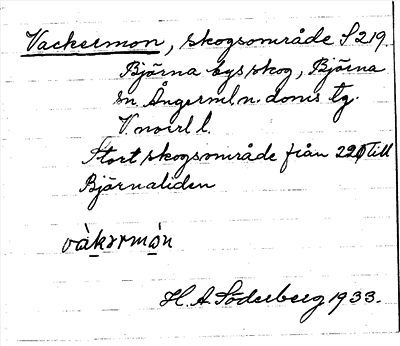 Vackermon, skogsområde S 219
Bjärna bys skog, Bjärna
sn. Ångerml. n. doms tg.
V.norrl. l.
Stort skogsområde från 220 till
Bjärnaliden
vàkərmo̱n
H. A. Söderberg 1933.